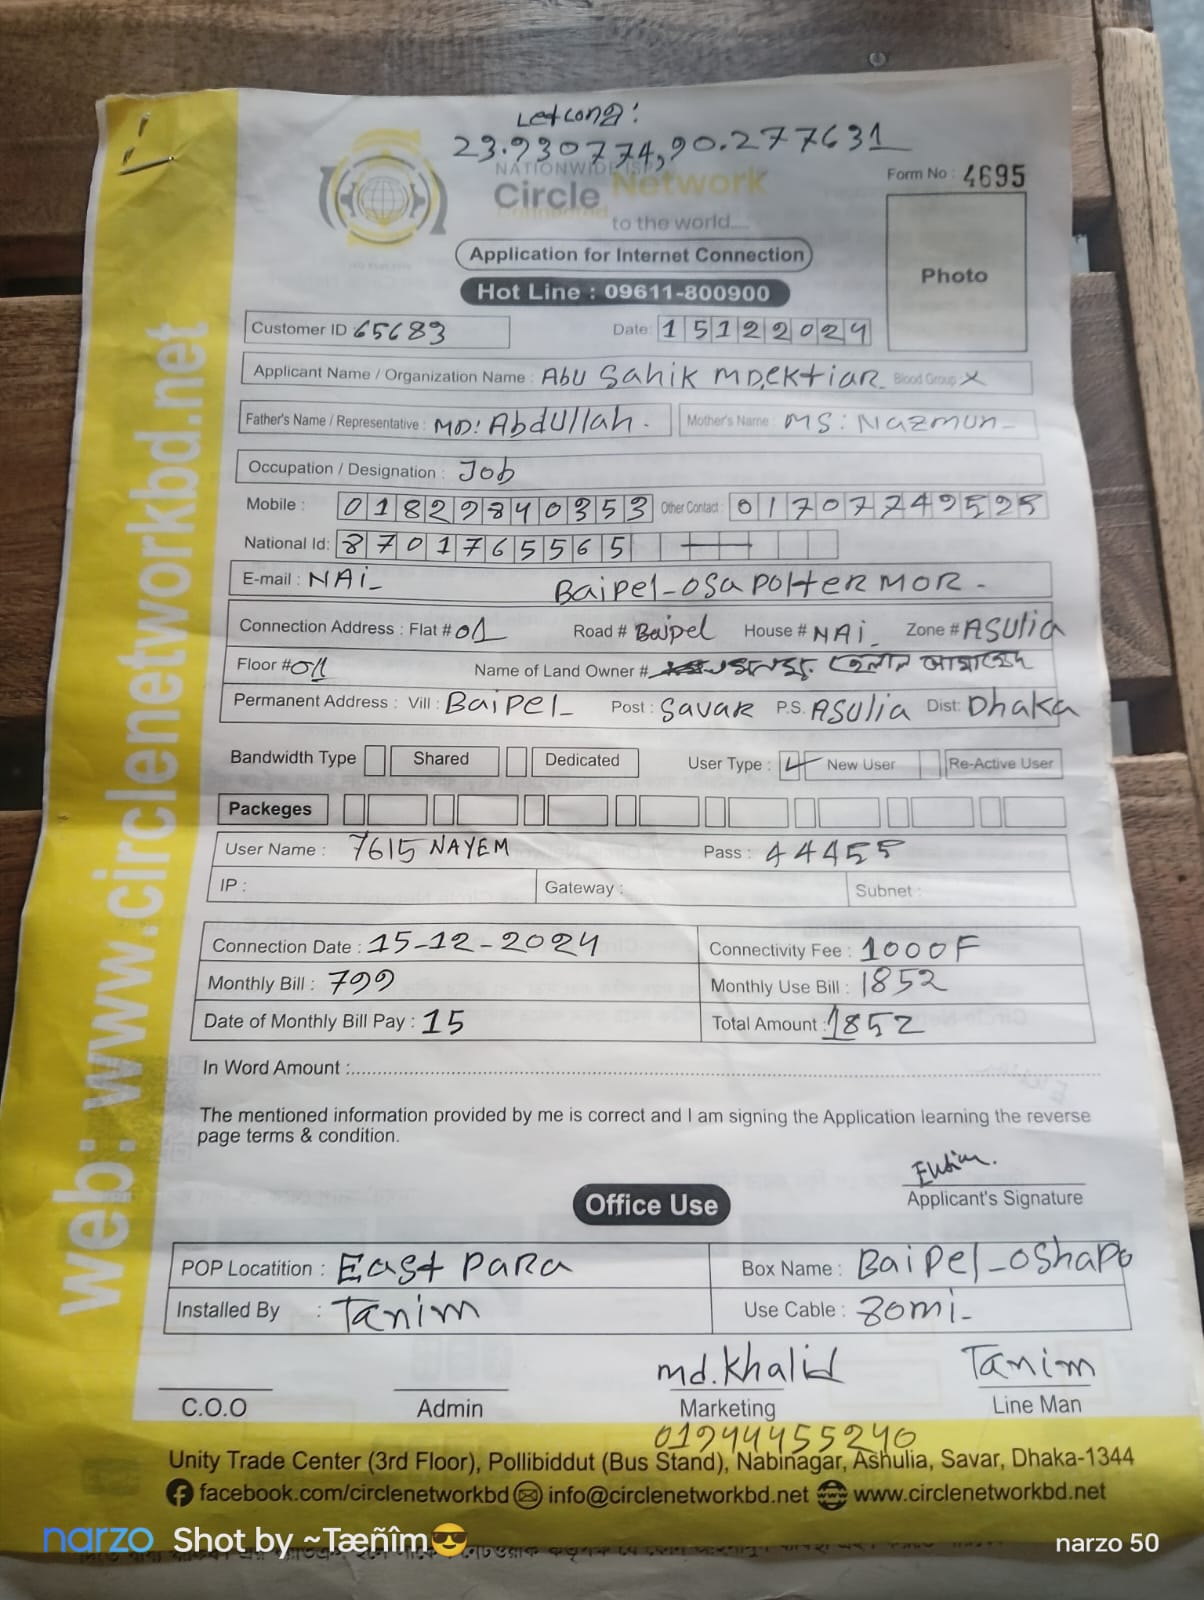 23.930774,90.277631
NATIONWIDE ISP
Circle Network
to the world....
Form No : 4695
Application for Internet Connection
Photo
Hot Line : 09611-800900
Customer ID 65683
Date: 15122024
Applicant Name / Organization Name : Abu Sahik MD,EKtiar Blood Group X
Father's Name / Representative : MD: Abdullah. Mother's Name : MS: Nazmun
Occupation / Designation : Job
Mobile : 01829840353 Other Contact : 01707749525
National Id: 8701765565
E-mail : NAi Baipel-osapolterMOR
Connection Address : Flat # 01 Road # Baipel House # NAi Zone # ASulia
Floor # 011 Name of Land Owner #
Permanent Address : Vill : Baipel Post : Savar P.S. ASulia Dist: Dhaka
Bandwidth Type Shared Dedicated User Type : New User Re-Active User
Packeges
User Name : 7615 NAYEM Pass : 44455
IP : Gateway : Subnet :
Connection Date : 15-12-2024 Connectivity Fee : 1000F
Monthly Bill : 799 Monthly Use Bill : 1852
Date of Monthly Bill Pay : 15 Total Amount : 1852
In Word Amount :
The mentioned information provided by me is correct and I am signing the Application learning the reverse
page terms & condition.
Applicant's Signature
Office Use
POP Locatition : East Para Box Name : Baipel-oshapo
Installed By : Tanim Use Cable : 80mi
md.Khalid Tanim
C.O.O Admin Marketing Line Man
01944455240
Unity Trade Center (3rd Floor), Pollibiddut (Bus Stand), Nabinagar, Ashulia, Savar, Dhaka-1344
facebook.com/circlenetworkbd info@circlenetworkbd.net www.circlenetworkbd.net
web: www.circlenetworkbd.net
narzo Shot by ~Tæñîm😎 narzo 50